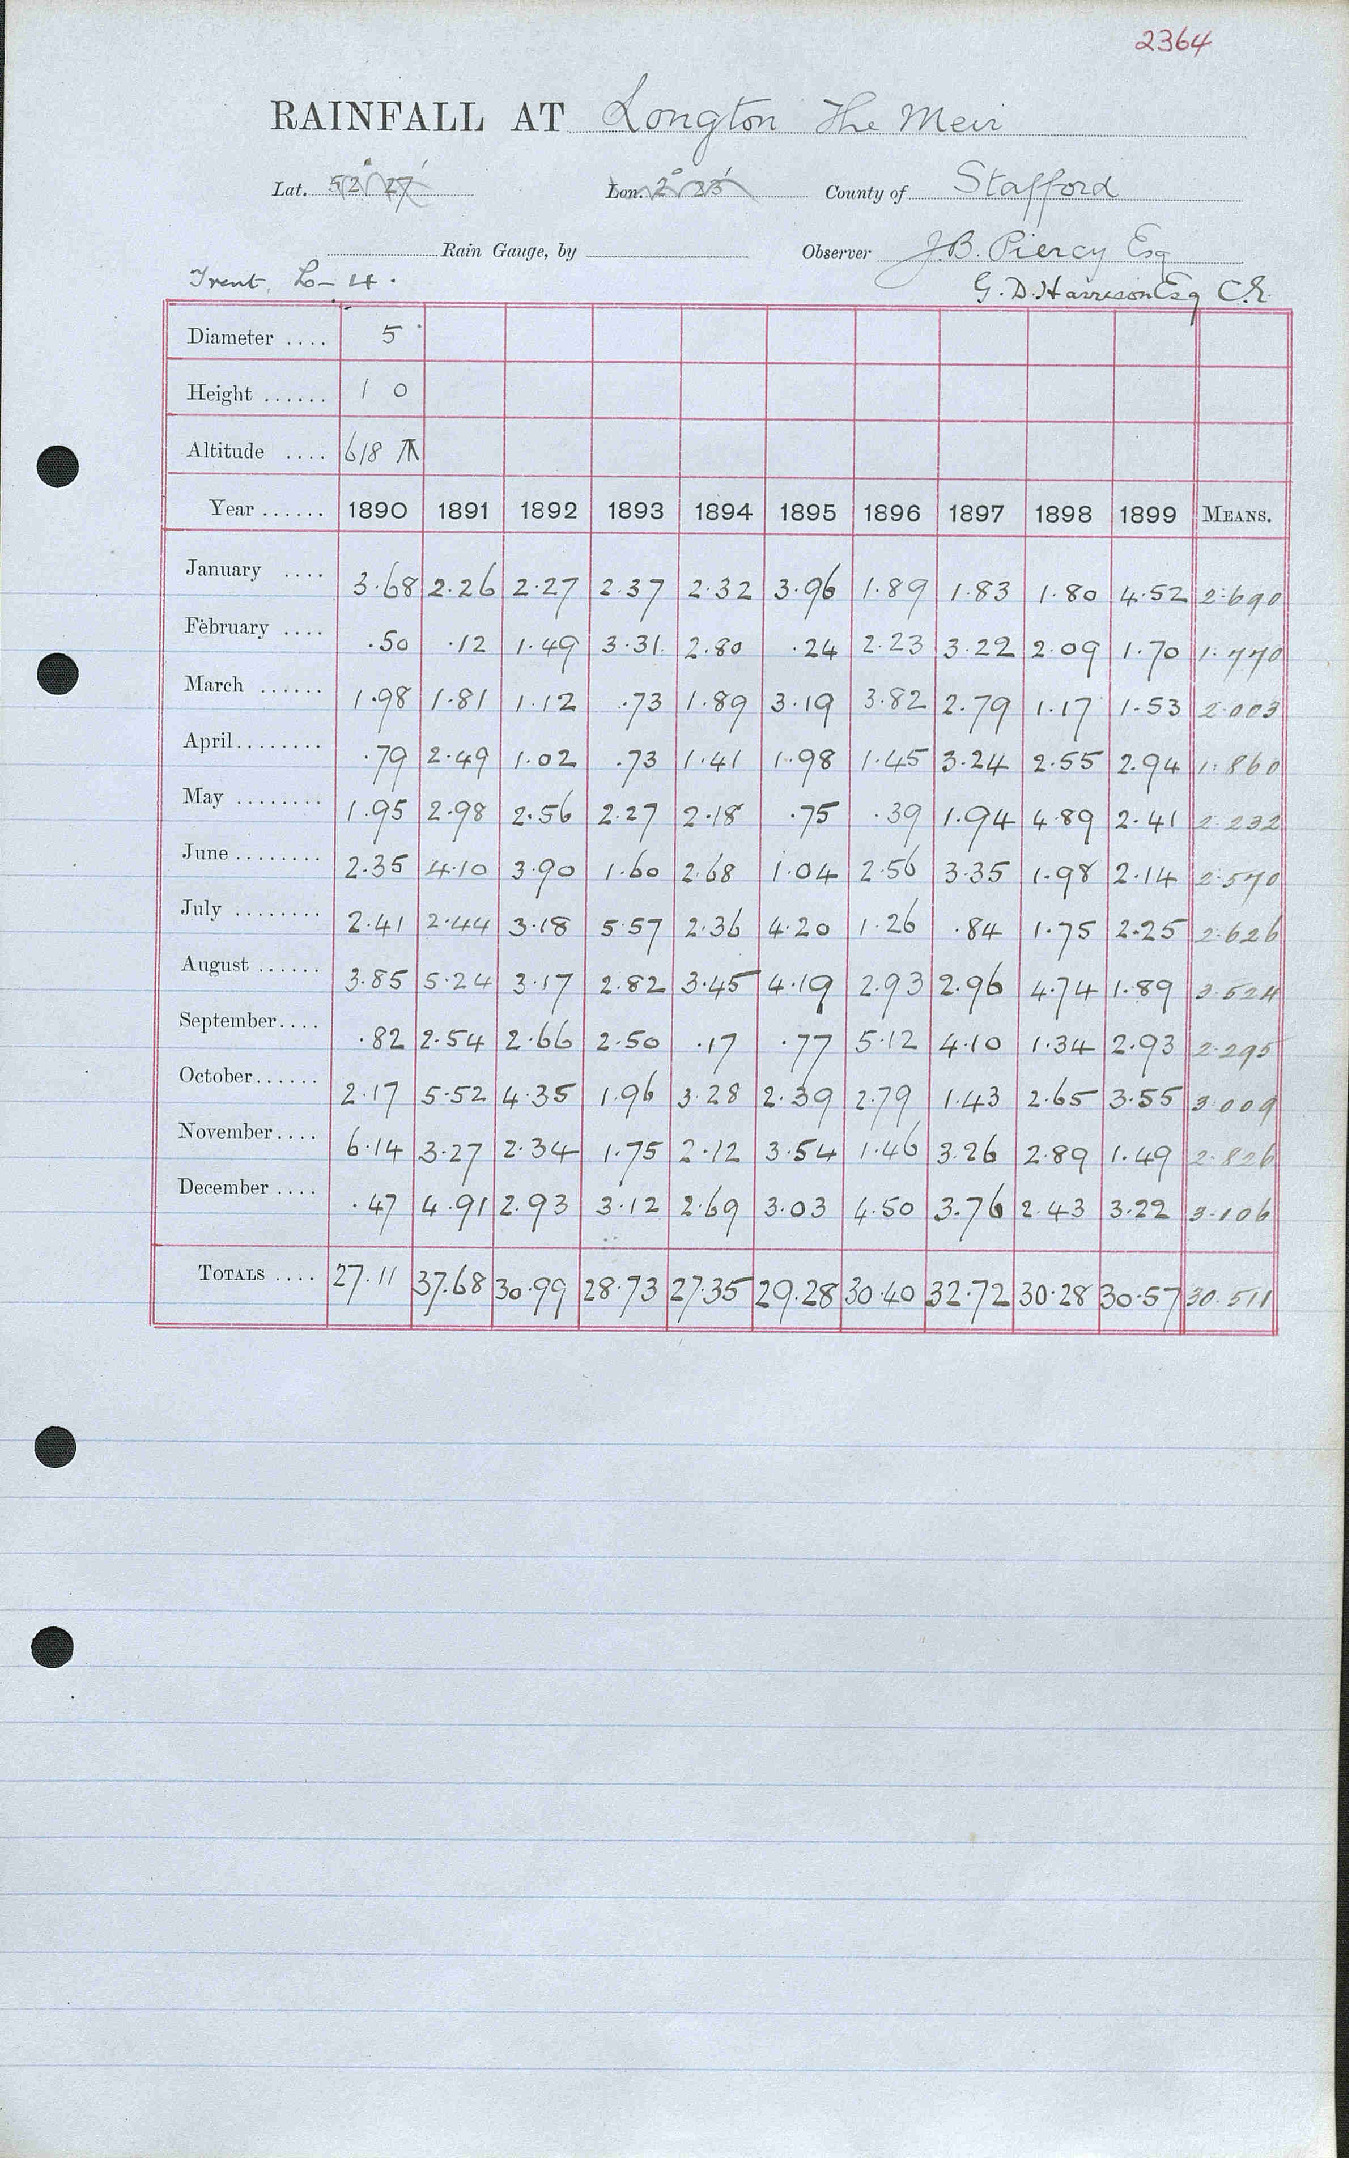 2364
RAINFALL AT Longton The Meir
Lat. 52° 27' Lon. 2° 23' County of Stafford
Rain Gauge, by Observer J.B. Piercy Esq
Trent. L-4. G.D. Harrison Esq C.E.
Diameter .... 5
Height ...... 1 0
Altitude .... 618
Year ...... 1890 1891 1892 1893 1894 1895 1896 1897 1898 1899 MEANS.
January .... 3.68 2.26 2.27 2.37 2.32 3.96 1.89 1.83 1.80 4.52 2.690
February .... .50 .12 1.49 3.31 2.80 .24 2.23 3.22 2.09 1.70 1.770
March ...... 1.98 1.81 1.12 .73 1.89 3.19 3.82 2.79 1.17 1.53 2.003
April........ .79 2.49 1.02 .73 1.41 1.98 1.45 3.24 2.55 2.94 1.860
May ........ 1.95 2.98 2.56 2.27 2.18 .75 .39 1.94 4.89 2.41 2.232
June ........ 2.35 4.10 3.90 1.60 2.68 1.04 2.56 3.35 1.98 2.14 2.570
July ........ 2.41 2.44 3.18 5.57 2.36 4.20 1.26 .84 1.75 2.25 2.626
August ...... 3.85 5.24 3.17 2.82 3.45 4.19 2.93 2.96 4.74 1.89 3.524
September.... .82 2.54 2.66 2.50 .17 .77 5.12 4.10 1.34 2.93 2.295
October...... 2.17 5.52 4.35 1.96 3.28 2.39 2.79 1.43 2.65 3.55 3.009
November.... 6.14 3.27 2.34 1.75 2.12 3.54 1.46 3.26 2.89 1.49 2.826
December .... .47 4.91 2.93 3.12 2.69 3.03 4.50 3.76 2.43 3.22 3.106
TOTALS .... 27.11 37.68 30.99 28.73 27.35 29.28 30.40 32.72 30.28 30.57 30.511